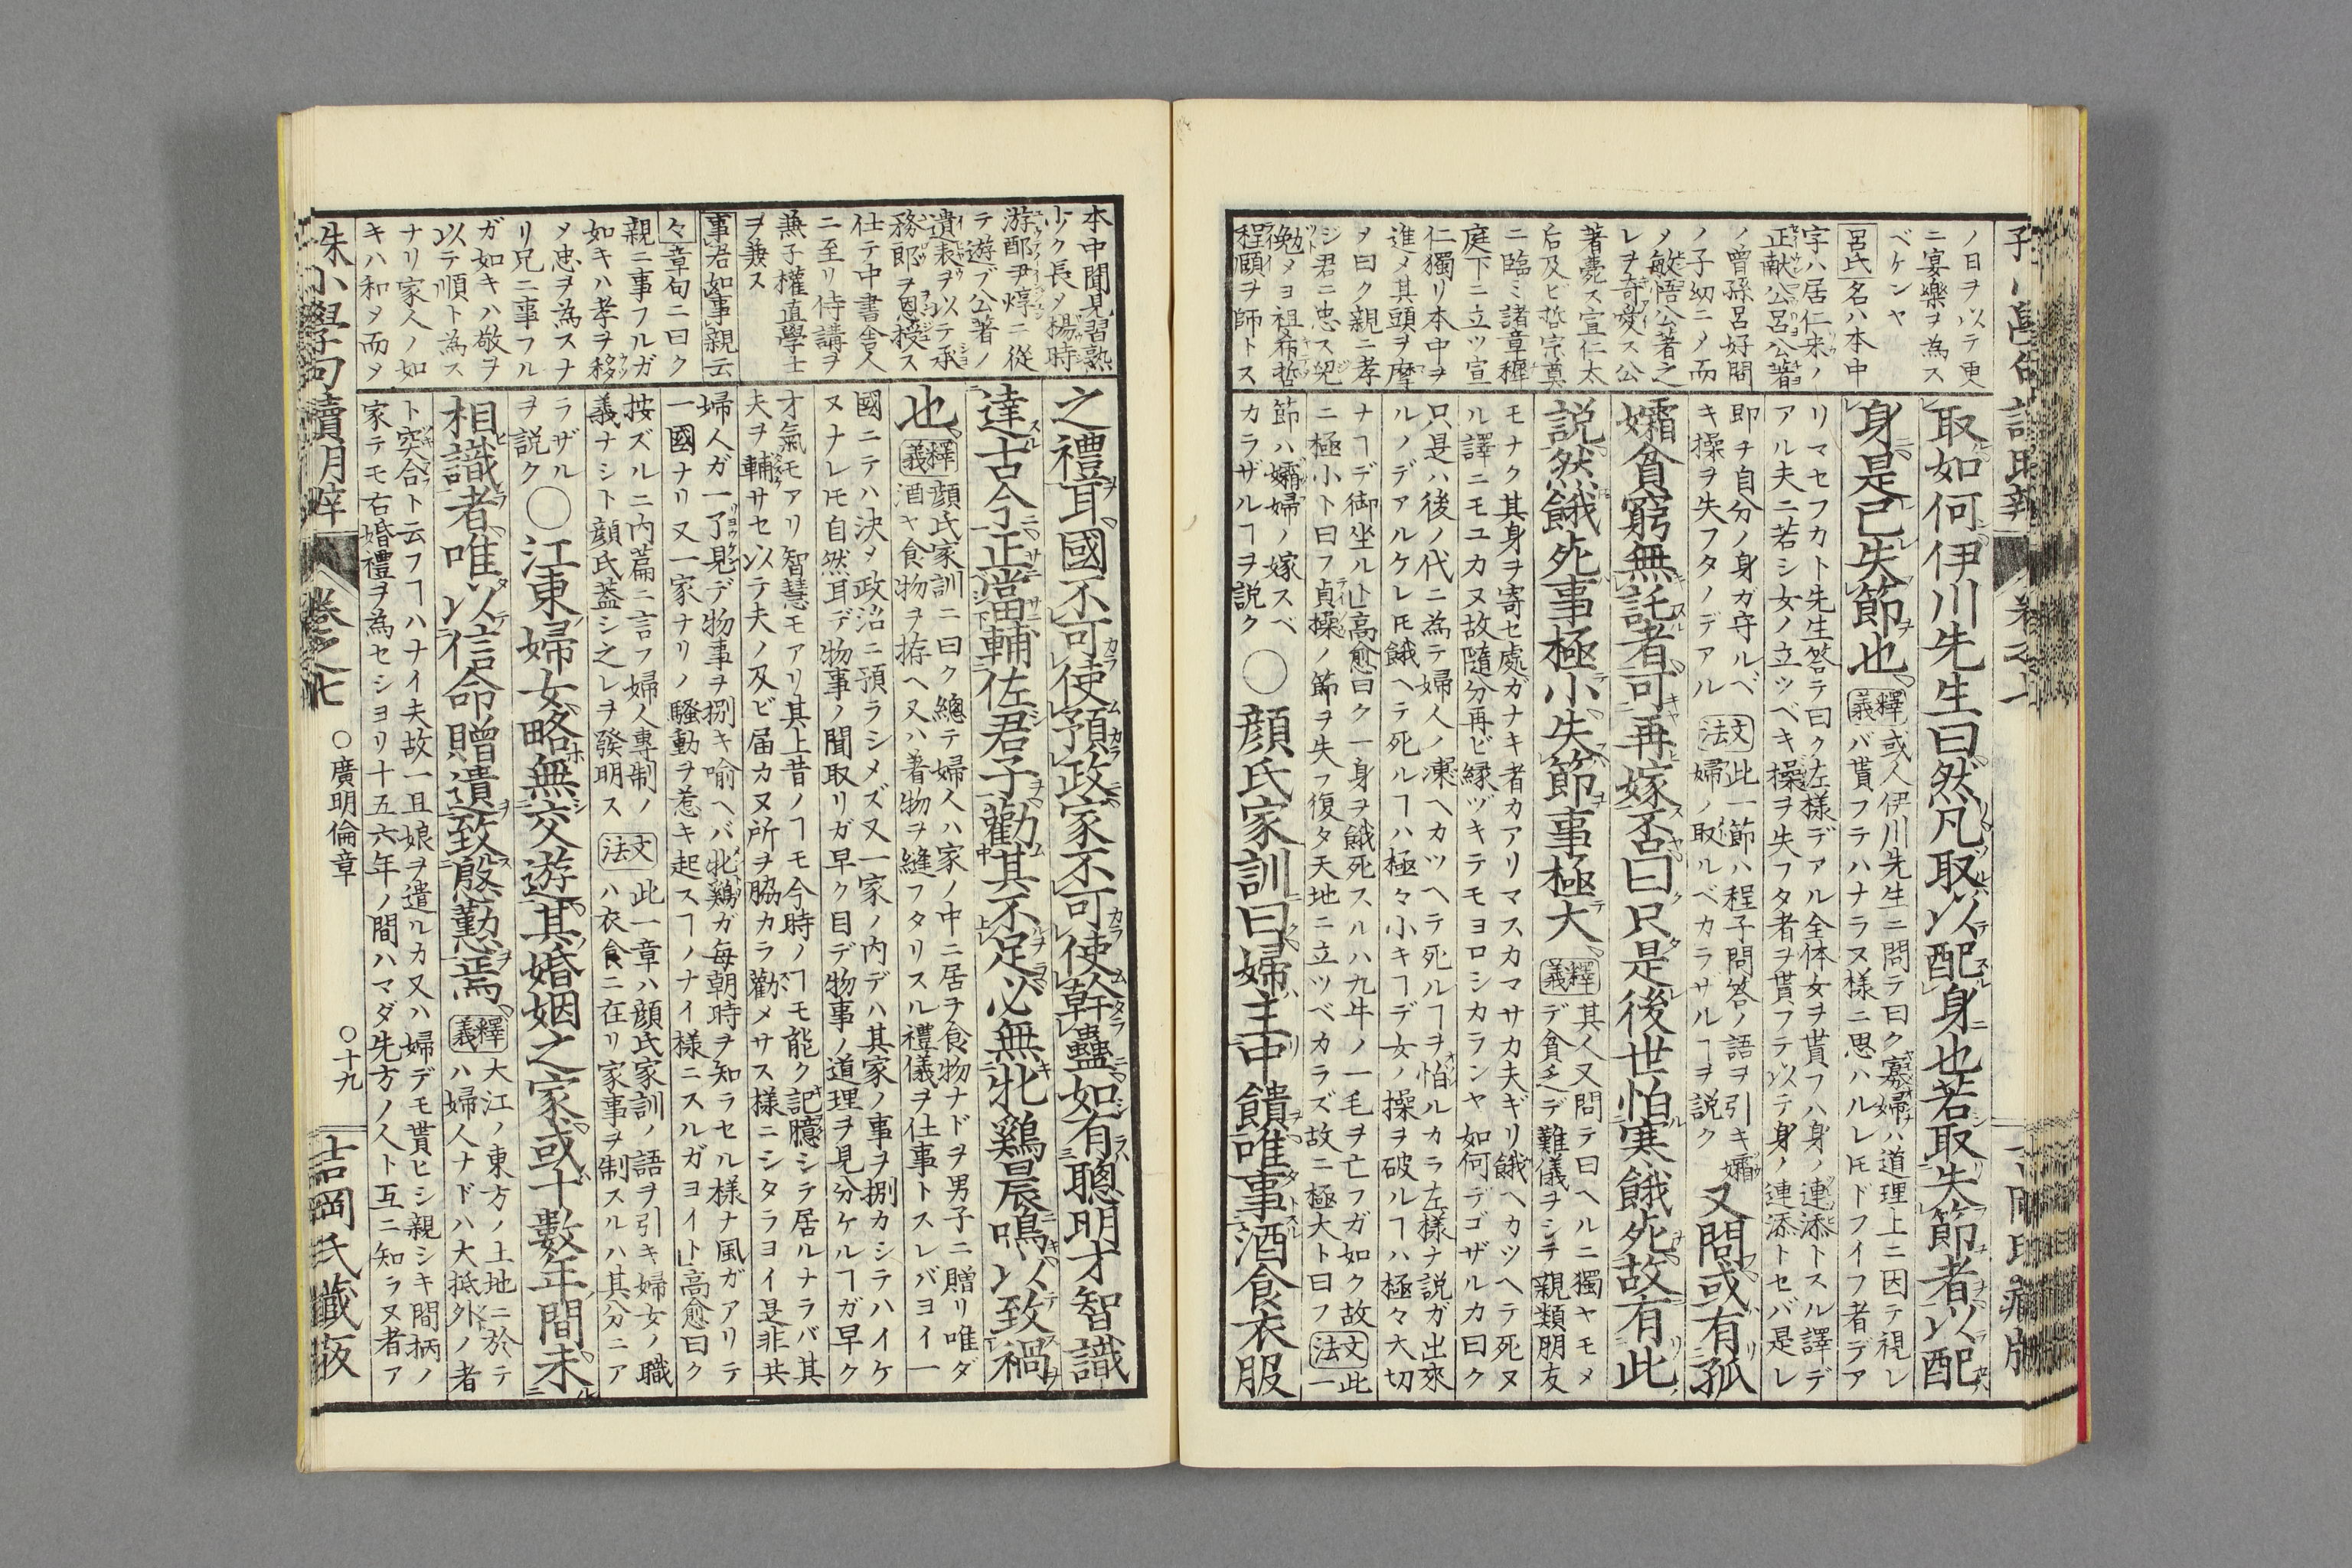 ノ日ヲ以テ更
ニ宴樂ヲ為ス
ベケンヤ
呂氏名ハ本中
字ハ居仁宋ノ
正献公呂公著
ノ曾孫呂好問
ノ子幼ニメ而
メ敏悟公著之
レヲ奇愛ス公
著薨ス宣仁太
后及ビ哲宗奠
ニ臨ミ諸章穉
庭下ニ立ツ宣
仁獨リ本中ヲ
進メ其頭ヲ摩
ヲ曰ク親ニ孝
ジ君ニ忠ス兒
勉メヨ祖希哲
程頤ヲ師トス
取如何伊川先生曰然凡取以配身也若取失節者以配
身是己失節也
釋義
或人伊川先生ニ問テ曰ク寡婦ハ道理上ニ因テ視レ
バ貰フテハナラヌ様ニ思ハルレ𪜈ドフイフ者デア
リマセフカト先生答テ曰ク左様デアル全体女ヲ貰フハ身ノ連添トスル譯デ
アル夫ニ若シ女ノ立ツベキ操ヲ失フタ者ヲ貰フテ以テ身ノ連添トセバ是レ
即チ自分ノ身ガ守ルベ
キ操ヲ失フタノデアル
文法
此一節ハ程子問答ノ語ヲ引キ孀
婦ノ取ルベカラサルヿヲ説ク
又問或有孤
孀貧窮無託者可再嫁否曰只是後世怕寒餓死故有此
説然餓死事極小失節事極大
釋義
其人又問テ曰ヘルニ獨ヤモメ
デ貧乏デ難儀ヲシテ親類朋友
モナク其身ヲ寄セ處ガナキ者カアリマスカマサカ夫ギリ餓ヘカツヘテ死ヌ
ル譯ニモユカヌ故隨分再ビ縁ヅキテモヨロシカランヤ如何デゴザルカ曰ク
只是ハ後ノ代ニ為テ婦人ノ凍ヘカツヘテ死ルヿヲ怕ルカラ左樣ナ説ガ出來
ルノデアルケレ𪜈餓ヘテ死ルヿハ極々小キヿデ女ノ操ヲ破ルヿハ極々大切
ナヿデ御坐ルト高愈曰ク一身ヲ餓死スルハ九牛ノ一毛ヲ亡フガ如ク故
ニ極小ト曰フ貞操ノ節ヲ失フ復タ天地ニ立ツベカラズ故ニ極大ト曰フ
文法
此一
節ハ孀婦ノ嫁スベ
カラザルヿヲ説ク
○顔氏家訓曰婦主中饋唯事酒食衣服
本中聞見習熟
少ク長メ楊時
游酢尹焞ニ從
テ遊ブ公著ノ
遺表ヲ以テ承
務郎ヲ恩授ス
仕テ中書舎人
ニ至リ侍講ヲ
兼子權直學士
ヲ兼ス
事君如事親云
々章句ニ曰ク
親ニ事フルガ
如キハ孝ヲ移
メ忠ヲ為スナ
リ兄ニ事フル
ガ如キハ敬ヲ
以テ順ト為ス
ナリ家人ノ如
キハ和メ而メ
之禮耳國不可使預政家不可使幹蠱如有聰明才智識
達古今正當輔佐君子勸其不足必無牝鷄晨鳴以致禍
也
釋義
顔氏家訓ニ曰ク總テ婦人ハ家ノ中ニ居ヲ食物ナドヲ男子ニ贈リ唯ダ
酒ヤ食物ヲ拵ヘ又ハ著物ヲ縫フタリスル禮儀ヲ仕事トスレバヨイ一
國ニテハ決メ政治ニ預ラシメズ又一家ノ内デハ其家ノ事ヲ捌カシテハイケ
ヌナレ𪜈自然耳デ物事ノ聞取リガ早ク目デ物事ノ道理ヲ見分ケルヿガ早ク
才氣モアリ智慧モアリ其上昔ノヿモ今時ノヿモ能ク記臆シテ居ルナラバ其
夫ヲ輔サセ以テ夫ノ及ビ届カヌ所ヲ脇カラ勸メサス様ニシタラヨイ是非共
婦人ガ一了見デ物事ヲ捌キ喻ヘバ牝鷄ガ毎朝時ヲ知ラセル様ナ風ガアリテ
一國ナリ又一家ナリノ騷動ヲ惹キ起スヿノナイ様ニスルガヨイト高愈曰ク
按ズルニ内篇ニ言フ婦人專制ノ
義ナシト顔氏蓋シ之レヲ發明ス
文法
此一章ハ顔氏家訓ノ語ヲ引キ婦女ノ職
ハ衣食ニ在リ家事ヲ制スルハ其分ニア
ラザル
ヲ説ク
○江東婦女略無交遊其婚姻之家或十數年間未
相識者唯以信命贈遺致慇懃焉
釋義
大江ノ東方ノ土地ニ於テ
ハ婦人ナドハ大抵外ノ者
ト突合ト云フヿハナイ夫故一旦娘ヲ遣ルカ又ハ婦デモ貰ヒシ親シキ間柄ノ
家テモ右婚禮ヲ為セシヨリ十五六年ノ間ハマダ先方ノ人ト互ニ知ラヌ者ア
朱小學句讀明辨 卷之七 ○廣明倫章 ○十九 吉岡氏藏版